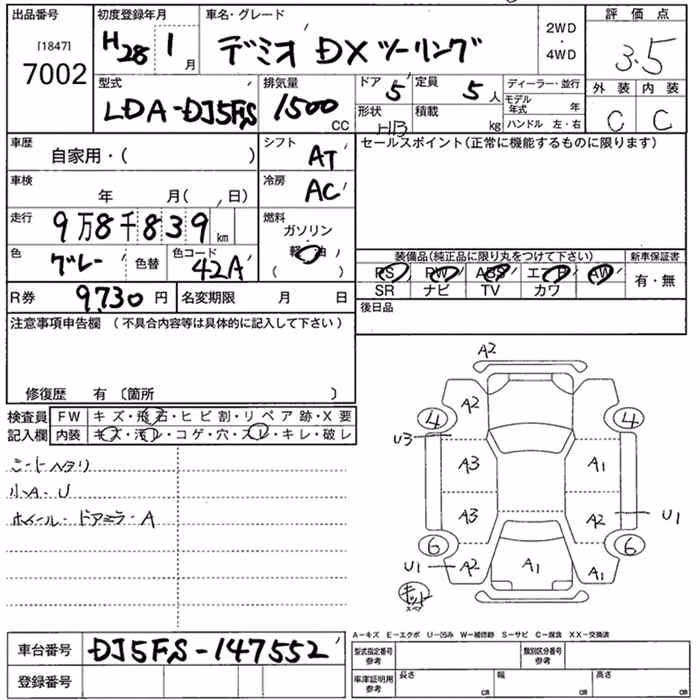 出品番号 初度登録年月 車名・グレード 2WD・4WD 評価点
[1847]
7002 H28 1月 デミオ DXツーリング 3.5
型式 排気量 ドア 定員 ディーラー・並行 外装 内装
LDA-DJ5FS 1500CC 5 5人 モデル年式 年 C C
形状 積載 ハンドル 左・右
H/B kg
車歴 自家用・( ) シフト AT セールスポイント(正常に機能するものに限ります)
車検 年 月( 、 日) 冷房 AC
走行 9万8千839km 燃料
ガソリン
軽油
( )
色 グレー 色替 色コード 42A 装備品(純正品に限り丸をつけて下さい) 新車保証書
PS PW ABS エアB AW 有・無
SR ナビ TV カワ
R券 9730円 名変期限 月 日 後日品
注意事項申告欄 (不具合内容等は具体的に記入して下さい)
修復歴 有 〔箇所 〕
検査員 FW キズ・飛石・ヒビ割・リペア跡・X要
記入欄 内装 キズ・汚レ・コゲ・穴・スレ・キレ・破レ
シートヘタリ
小A・U
ホイール・ドアミラーA
A2
A2
4 4
U3
A3 A1
A3 A2 U1
6 6
U1 A2 A1 A1
キット
スペア
A-キズ E-エクボ U-凹み W-補修跡 S-サビ C-腐食 XX-交換済
車台番号 DJ5FS-147552
登録番号
型式指定番号 参考 類別区分番号 参考
車庫証明用 参考 長さ CM 幅 CM 高さ CM